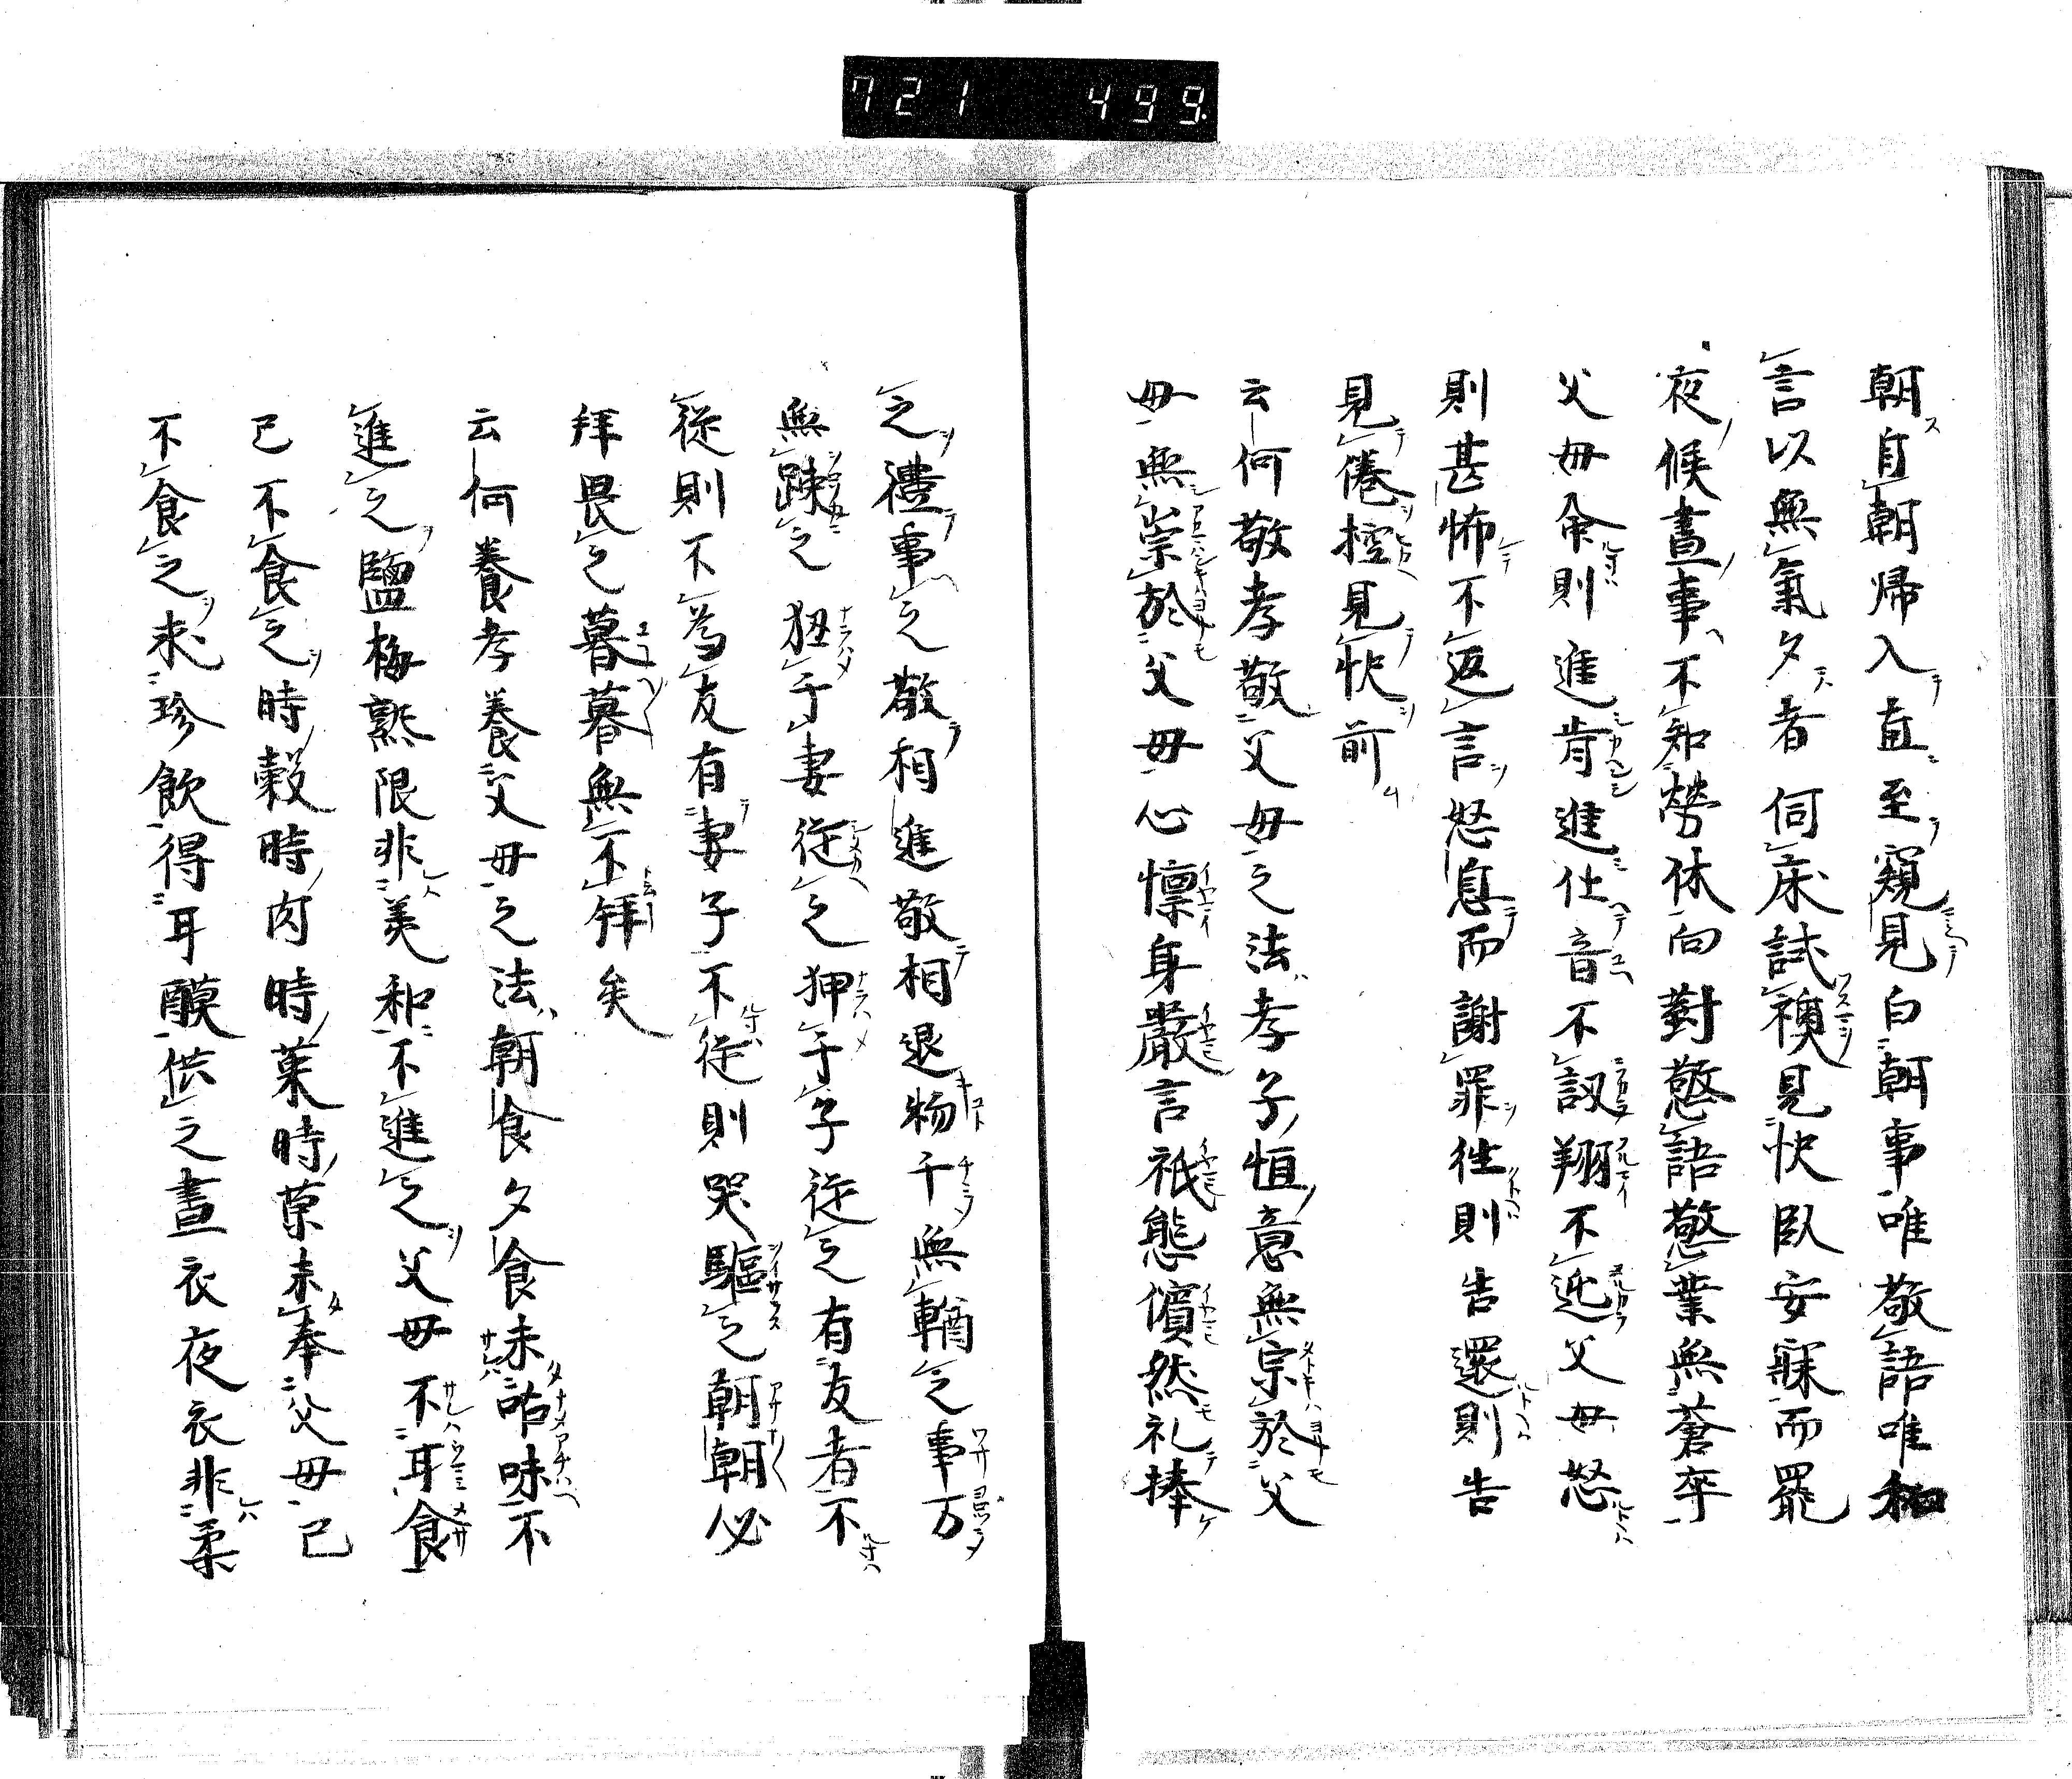 721 499.
朝自朝帰入直至窺見白朝事唯敬語唯和
言以無氣夕者伺床試襖見快臥安寐而罷
夜候晝事不知勞休向對慇語慇業無蒼卒
父母命則進肯進仕音不訒翔不迯父母怒
則甚怖不返言怒息而謝罪往則告還則告
見倦控見快前
云何敬孝敬父母之法孝子恒意無宗於父
母無崇於父母心懍身嚴言祇態儐然礼捧
之禮事之敬相進敬相退物千無輶之事万
無踈之狃于妻從之狎于子從之有友者不
從則不為友有妻子不從則哭驅之朝朝必
拜畏之暮暮無不拜矣
云何養孝養父母之法朝食夕食未詀味不
進之鹽梅熟限非美和不進之父母不耳食
已不食之時穀時肉時菓時菜未奉父母已
不食之求珍飲得耳膜供之晝衣夜衣非柔